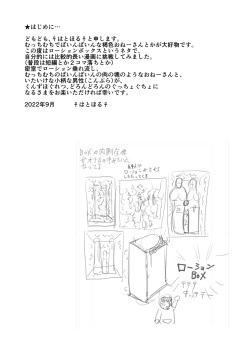 ★はじめに…
どもども､♀はとぽる♀と申します。
むっちむちでぱいんぱいんな褐色おねーさんとかが大好物です。
この度はローションボックスというネタで、
自分的には比較的長い漫画に挑戦してみました。
(普段は短編とか２コマ落ちとか)
密室でローション垂れ流し、
むっちむちのぱいんぱいんの肉の塊のようなおねーさんと、
いたいけな小柄な男性(こんぶら)が、
くんずほぐれつ､どろんどろんのぐっちょぐちょに
なるさまをお楽しみいただければ幸いです。
2022年9月
♀はとぽる♀
ローション
BOX